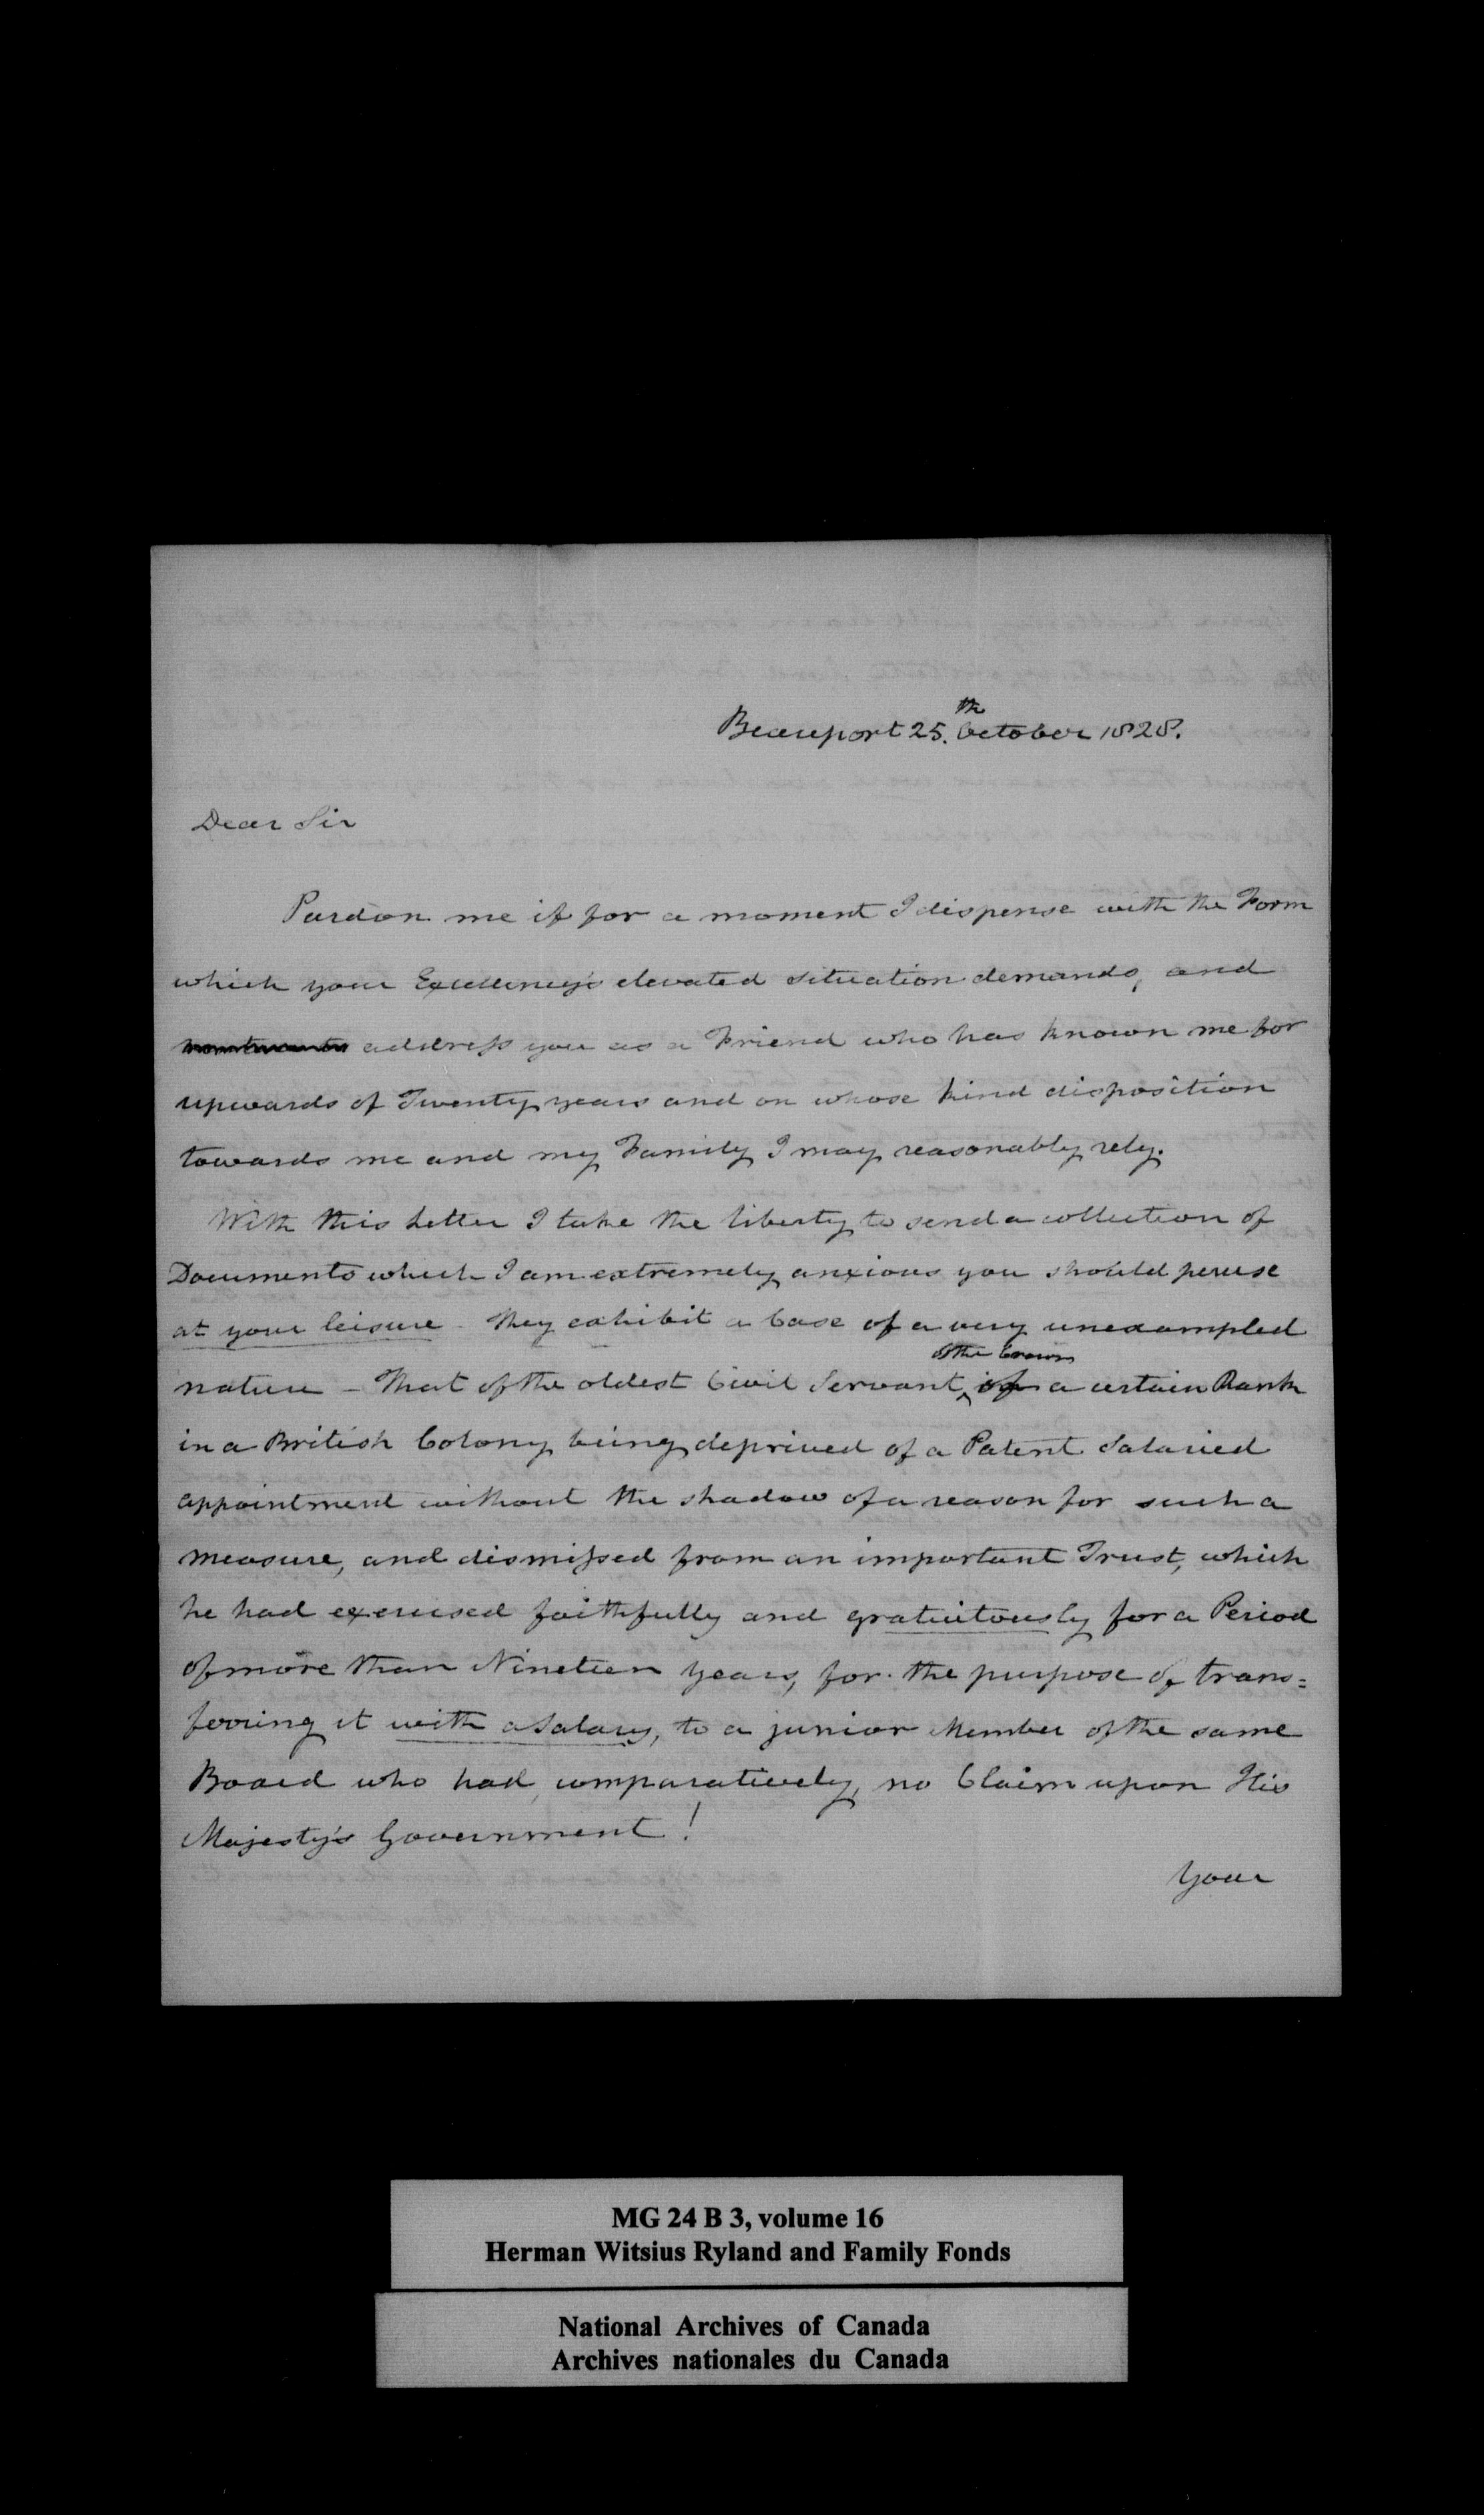 Beauport 25.th October 1828.
Dear Sir
Pardon me if for a moment I dispense with the Form
which your Excellency's elevated situation demands, and
address you as a Friend who has known me for
upwards of Twenty years and on whose kind disposition
towards me and my Family I may reasonably rely.
With this Letter I take the liberty to send a collection of
Documents which I am extremely anxious you should peruse
at your leisure - They exhibit a Case of a very unexampled
of the Crown
nature - That of the oldest Civil Servant, of a certain Rank
in a British Colony being deprived of a Patent Salaried
appointment without the shadow of a reason for such a
measure, and dismissed from an important Trust, which
he had exercised faithfully and gratuitously for a Period
of more than Nineteen years, for the purpose of trans=
ferring it with a Salary, to a junior Member of the same
Board who had, comparatively, no Claim upon His
Majesty's Government!
Your
MG 24 B 3, volume 16
Herman Witsius Ryland and Family Fonds
National Archives of Canada
Archives nationales du Canada